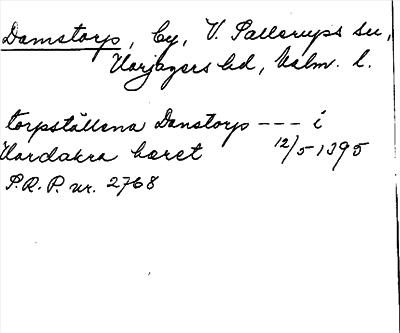 Damstorp, by, V. Sallerups sn,
Harjagers hd, Malm. l.
torpställena Danstorp --- i
Hardakra hæret 12/5 1395
S.R.P. nr. 2768